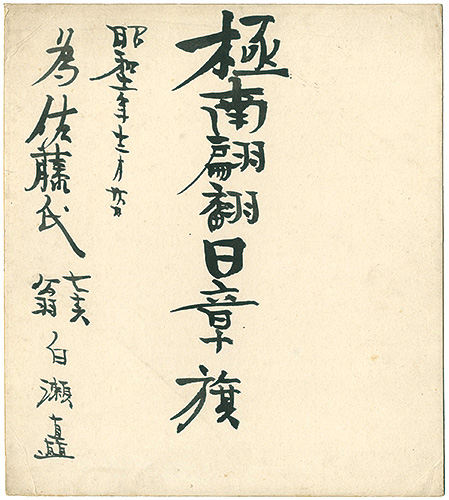 極南翩翻日章旗
昭和十一年十二月
為佐藤氏
七十六翁 白瀬矗